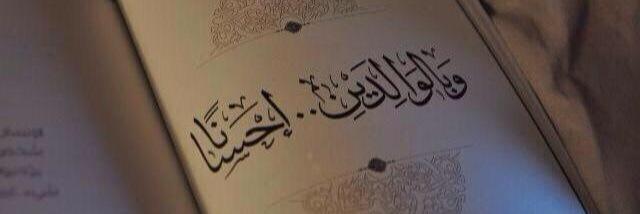 وَبِالوَالِدَينِ.. إِحْسَانًا